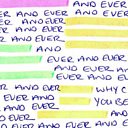 AND EVER
EVER AND EVER AND EVER
EVER AND EVER
EVER AND EVER
AND
EVER AND EVER
AND EVER AND EVER
EVER AND EVER
AND EVER WHY C
EVER AND YOU BE
AND EVER AND E
EVER AND EVER AND EVER AND EVER